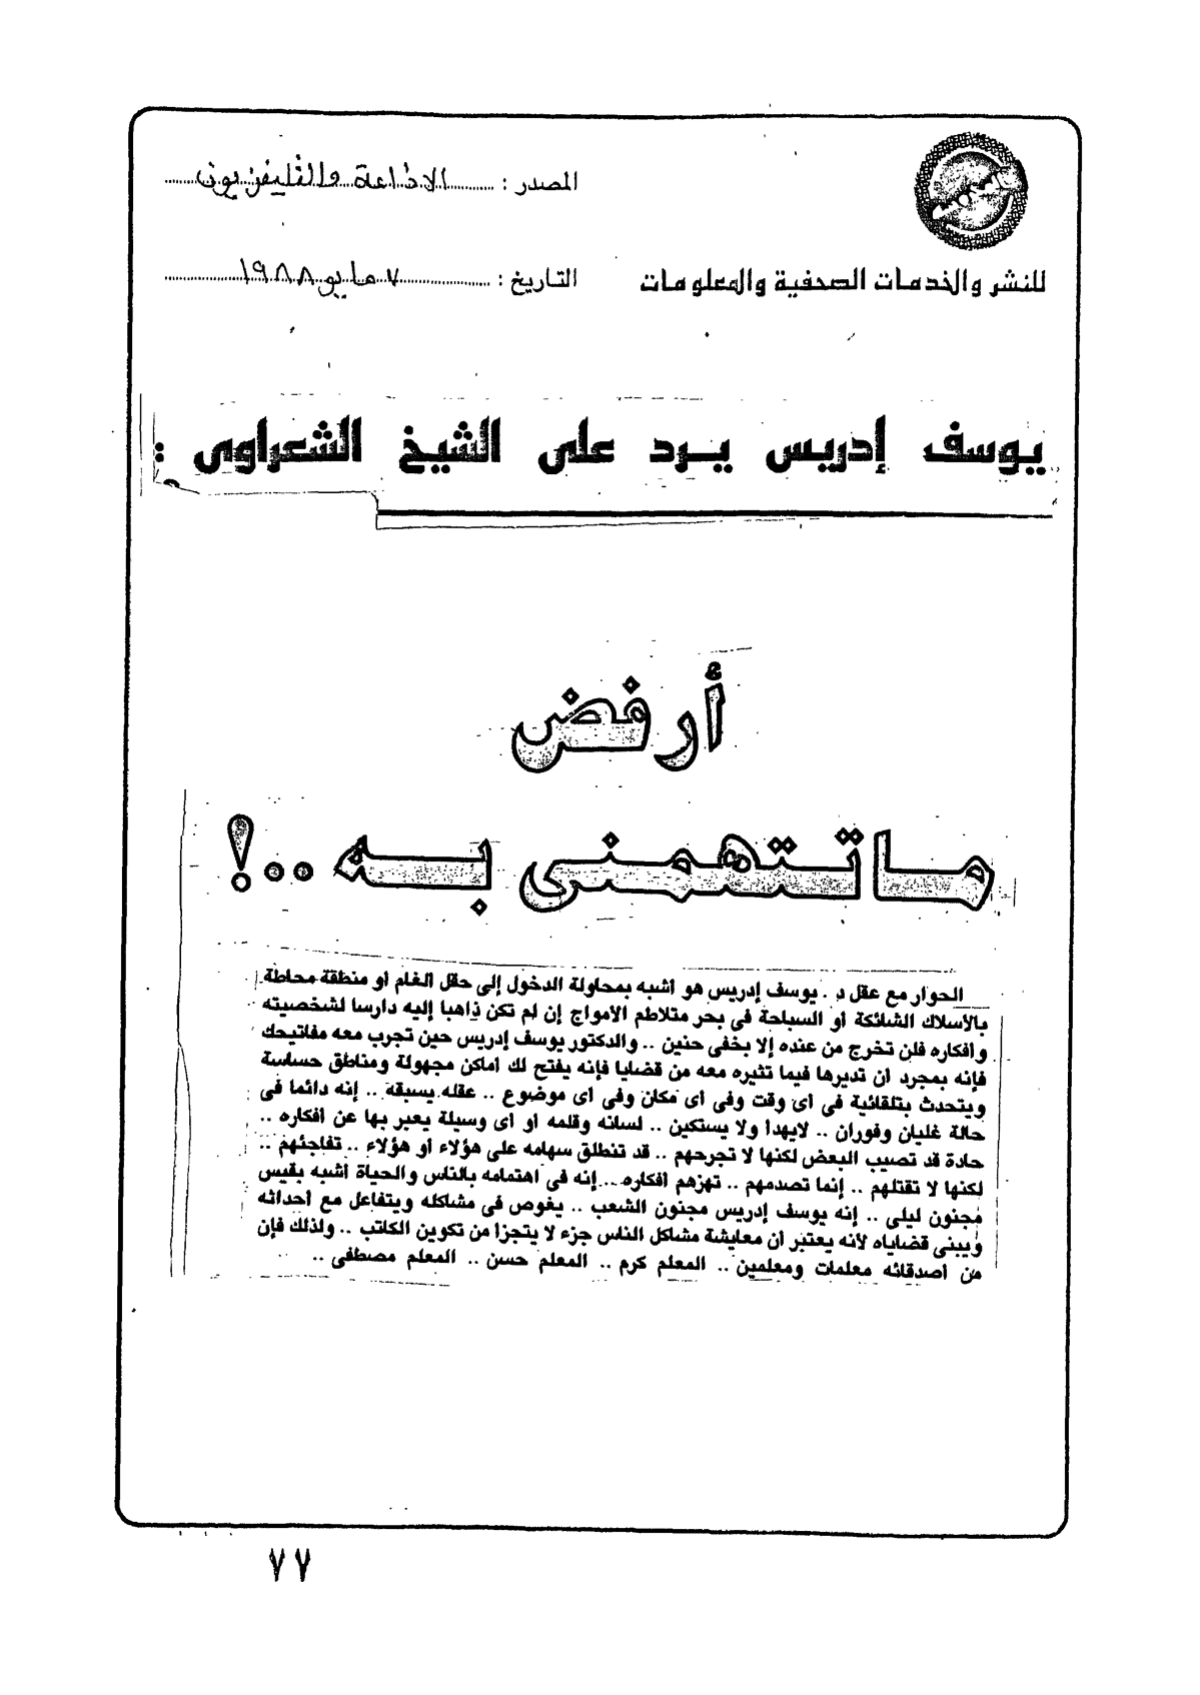 المصدر : الاذاعة والتليفزيون
للنشر والخدمات الصحفية والمعلومات
التاريخ : ٧ مايو ١٩٨٨
يوسف إدريس يرد على الشيخ الشعراوى :
أرفض
ما تتهمنى به ..!
الحوار مع عقل د . يوسف إدريس هو أشبه بمحاولة الدخول إلى حقل الغام أو منطقة محاطة
بالأسلاك الشائكة أو السباحة فى بحر متلاطم الأمواج إن لم تكن ذاهبا إليه دارسا لشخصيته
وأفكاره فلن تخرج من عنده إلا بخفى حنين .. والدكتور يوسف إدريس حين تجرب معه مفاتيحك
فإنه بمجرد ان تديرها فيما تثيره معه من قضايا فإنه يفتح لك أماكن مجهولة ومناطق حساسة
ويتحدث بتلقائية فى اى وقت وفى اى مكان وفى اى موضوع .. عقله يسبقه .. إنه دائما فى
حالة غليان وفوران .. لايهدا ولا يستكين .. لسانه وقلمه أو اى وسيلة يعبر بها عن افكاره ..
حادة قد تصيب البعض لكنها لا تجرحهم .. قد تنطلق سهامه على هؤلاء أو هؤلاء .. تفاجئهم ..
لكنها لا تقتلهم .. إنما تصدمهم .. تهزهم افكاره .. إنه فى اهتمامه بالناس والحياة أشبه بقيس
مجنون ليلى .. إنه يوسف إدريس مجنون الشعب .. يغوص فى مشاكله ويتفاعل مع أحداثه
ويبنى قضاياه لأنه يعتبر ان معايشة مشاكل الناس جزء لا يتجزأ من تكوين الكاتب .. ولذلك فإن
من أصدقائه معلمات ومعلمين .. المعلم كرم .. المعلم حسن .. المعلم مصطفى ..
٧٧